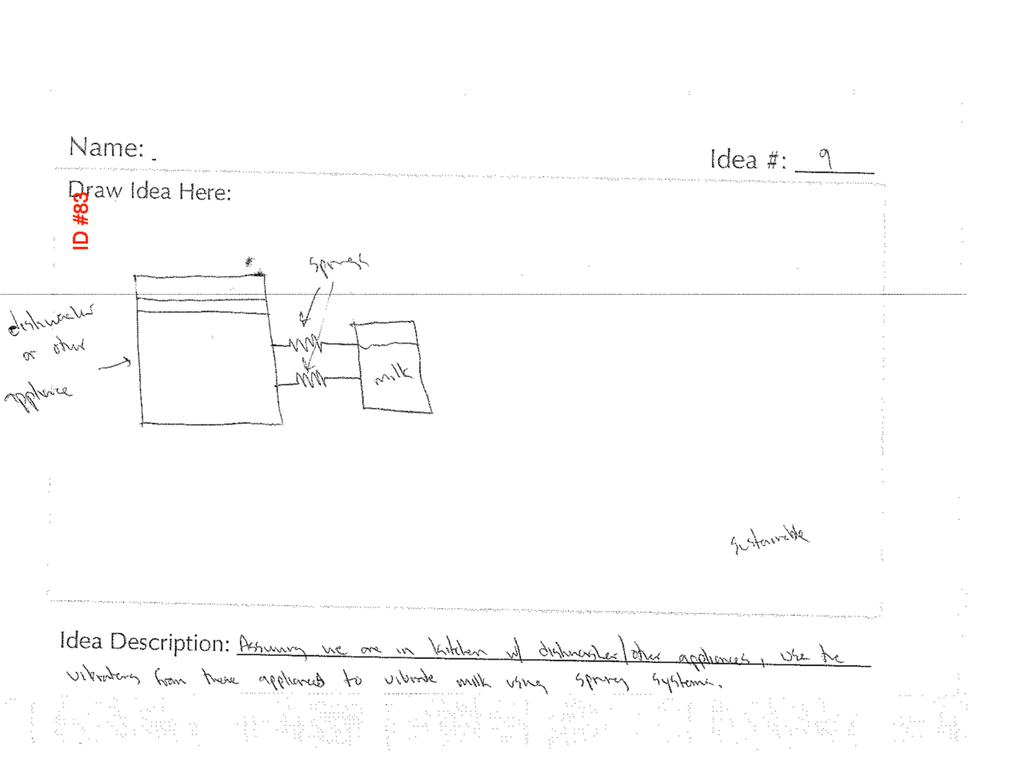 Name:
Idea #: 9
Draw Idea Here:
ID #83
springs
dishwasher
or other
appliance
milk
sustainable
Idea Description: Assuming we are in kitchen w/ dishwasher/other appliances, use the
vibrations from these appliances to vibrate milk using spring systems.